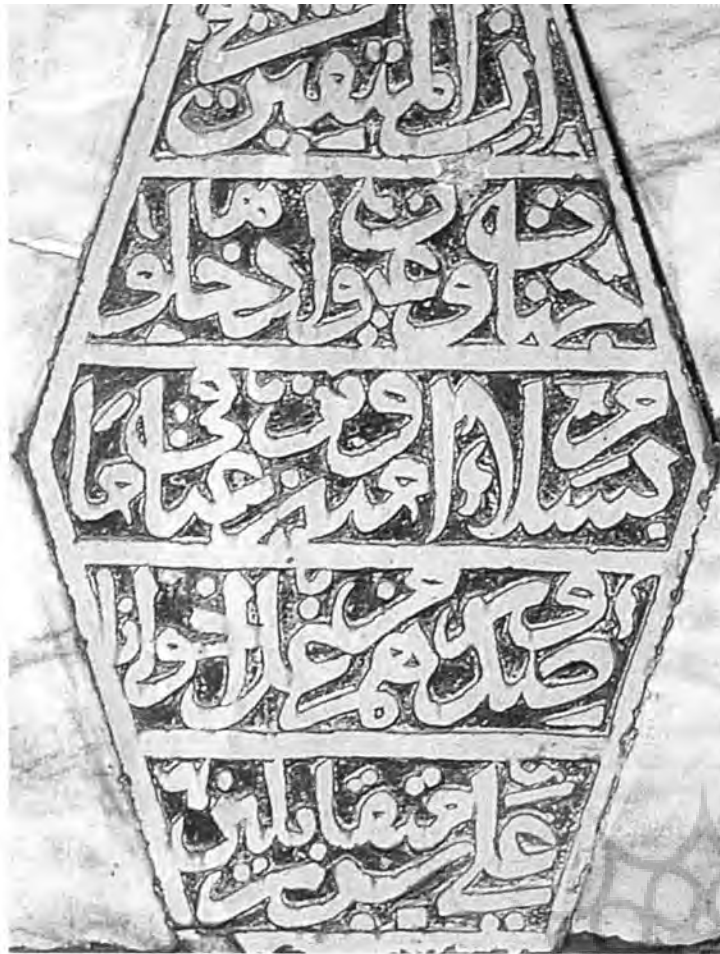 ان المتقين في
جنات وعيون ادخلوها
بسلام امنين ونزعنا ما في
صدورهم من غل اخوانا
على سرر متقابلين